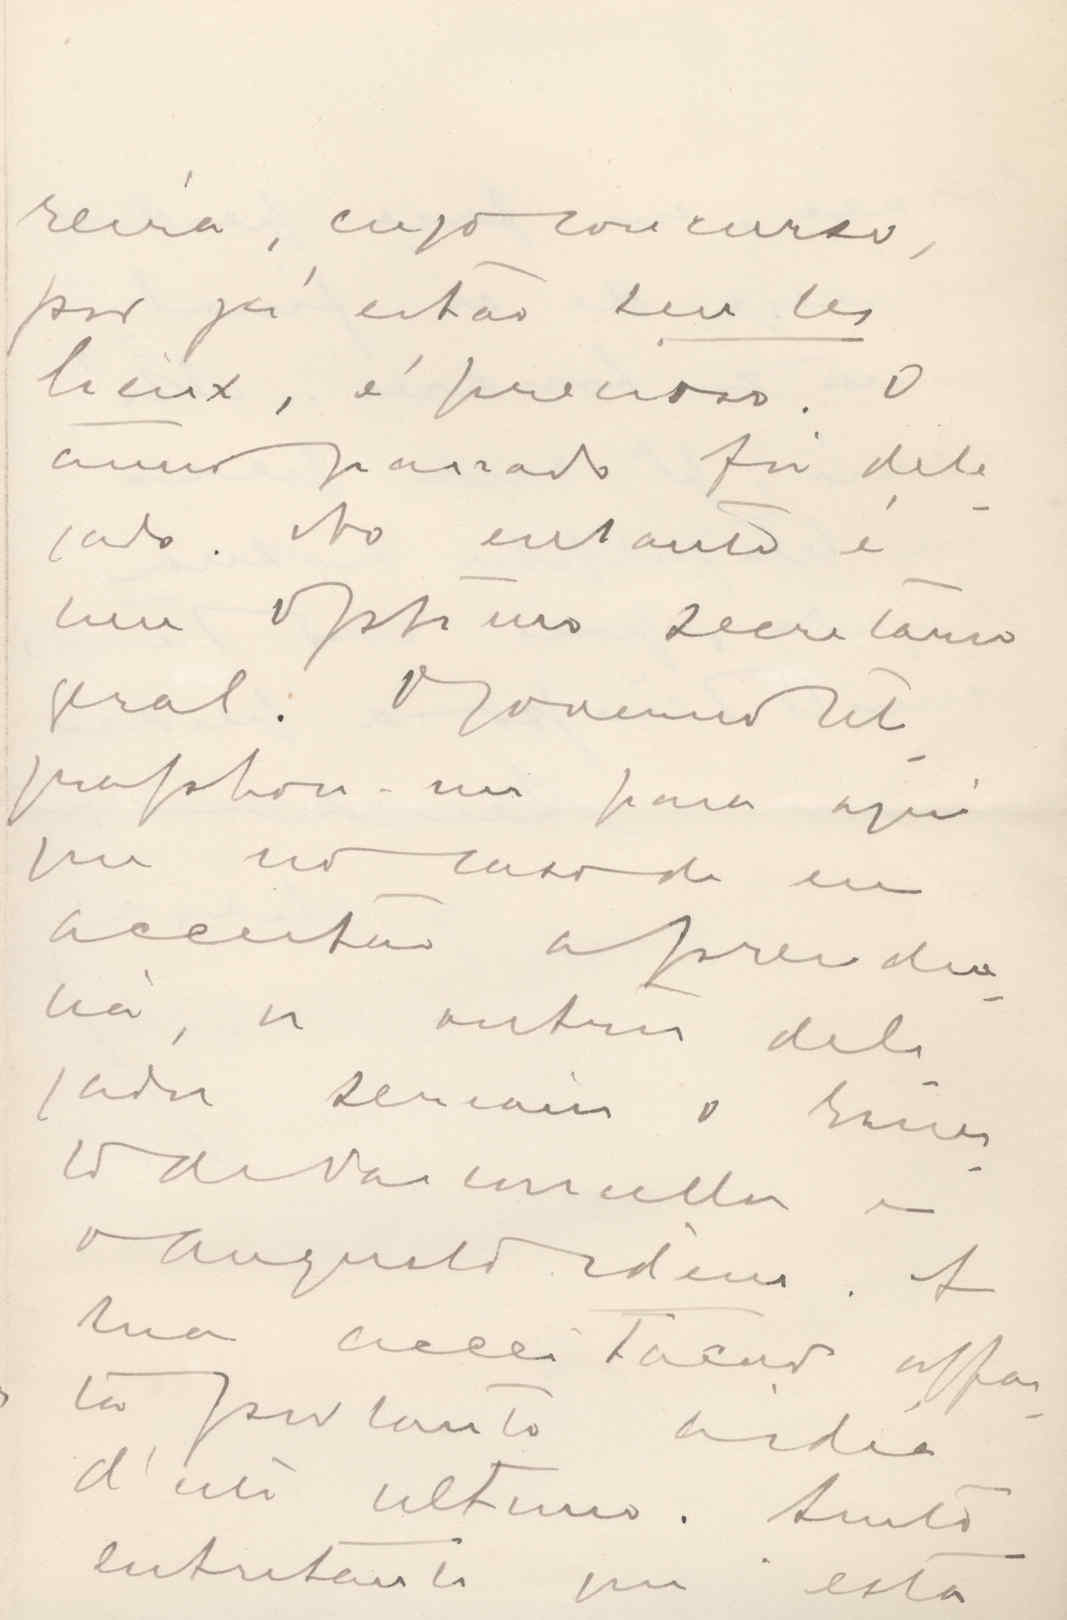 reira, cujo concurso,
por já estar sur les
lieux, é precioso. O
anno passado foi dele-
gado. No entanto é
um optimo secretario
geral. O governo tele-
graphou-me para aqui
que no caso de eu
acceitar a presiden-
cia, os outros dele-
gados seriam o Ernes-
to de Vasconcellos e
o Augusto
sua acceitacão affas-
ta portanto a idéa
d'este ultimo. Sinto
entretanto que esta